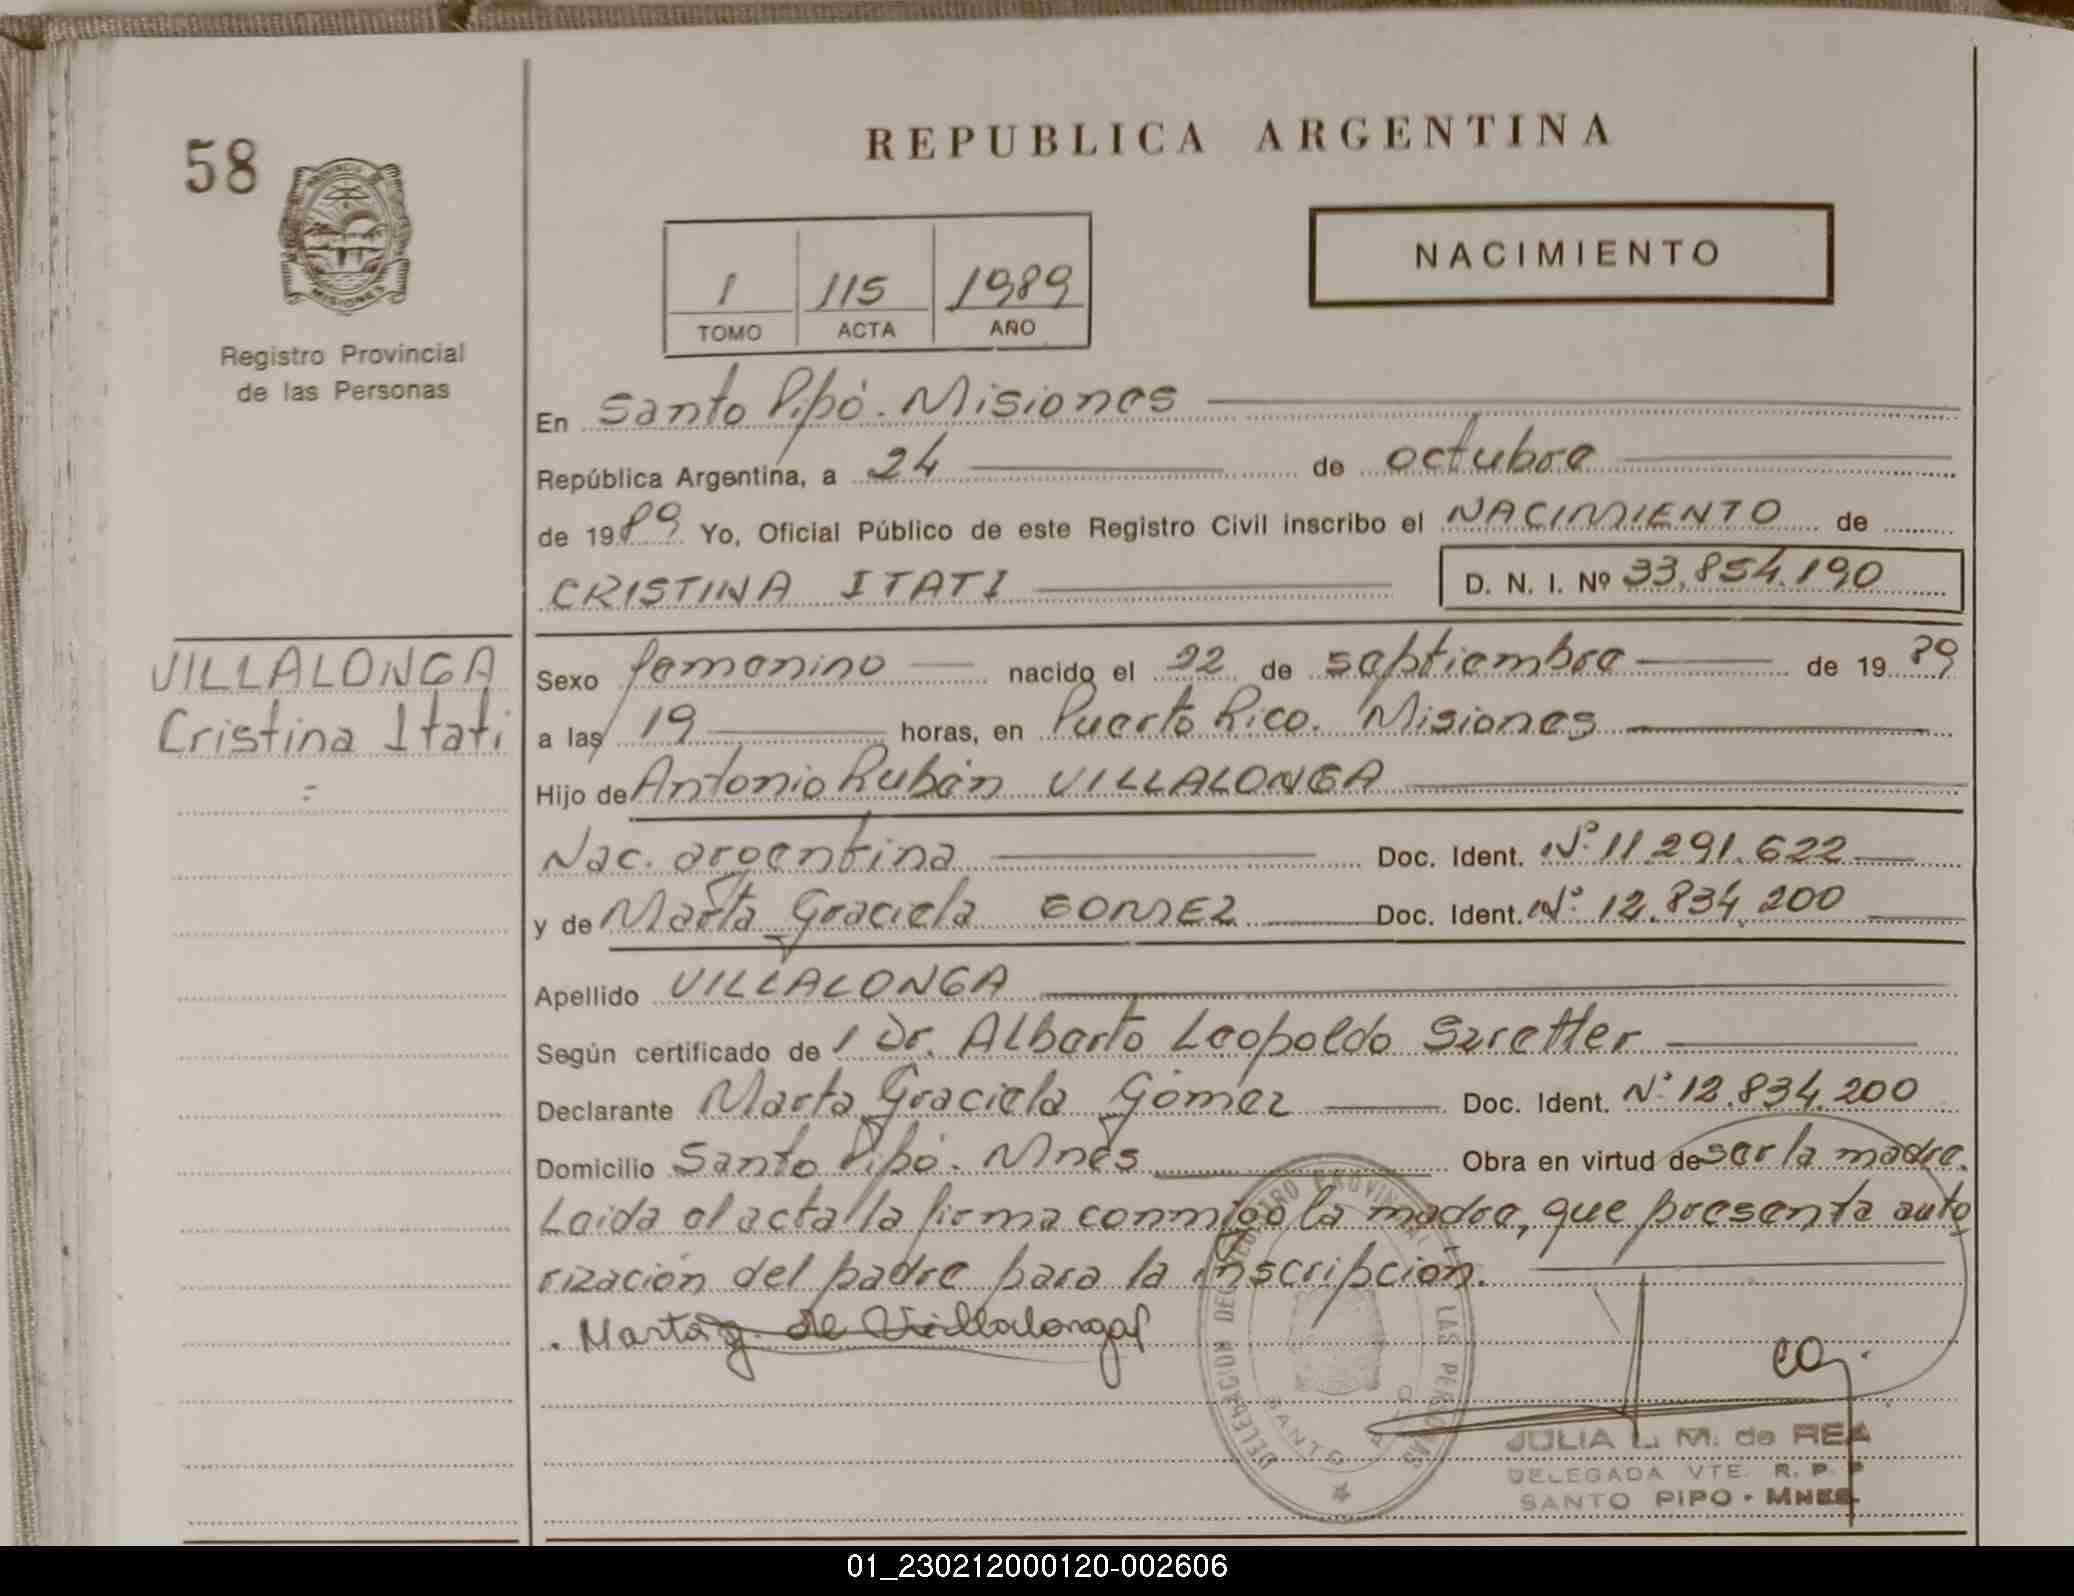 58
REPUBLICA ARGENTINA
NACIMIENTO
1 115 1989
TOMO ACTA AÑO
MISIONES
Registro Provincial
de las Personas
En Santo Pipó. Misiones
República Argentina, a 24 de octubre
de 1989 Yo, Oficial Público de este Registro Civil inscribo el NACIMIENTO de
CRISTINA ITATI D. N. I. Nº 33.854.190
VILLALONGA
Cristina Itati
Sexo femenino nacido el 22 de septiembre de 1989
a las 19 horas, en Puerto Rico. Misiones
Hijo de Antonio Rubén VILLALONGA
Nac. argentina Doc. Ident. Nº 11.291.622
y de Marta Graciela GOMEZ Doc. Ident. Nº 12.834.200
Apellido VILLALONGA
Según certificado de 1 Dr. Alberto Leopoldo
Declarante Marta Graciela Gómez Doc. Ident. Nº 12.834.200
Domicilio Santo Pipó. Mnes Obra en virtud de ser la madre.
Leida el acta la firma conmigo la madre, que presenta auto
rización del padre para la inscripción.
Marta g. de Villalonga
DELEGACION DEL REGISTRO PROVINCIAL LAS PERSONAS
SANTO
JULIA L. M. de REA
DELEGADA VTE. R. P. P
SANTO PIPO - MNES.
01_230212000120-002606